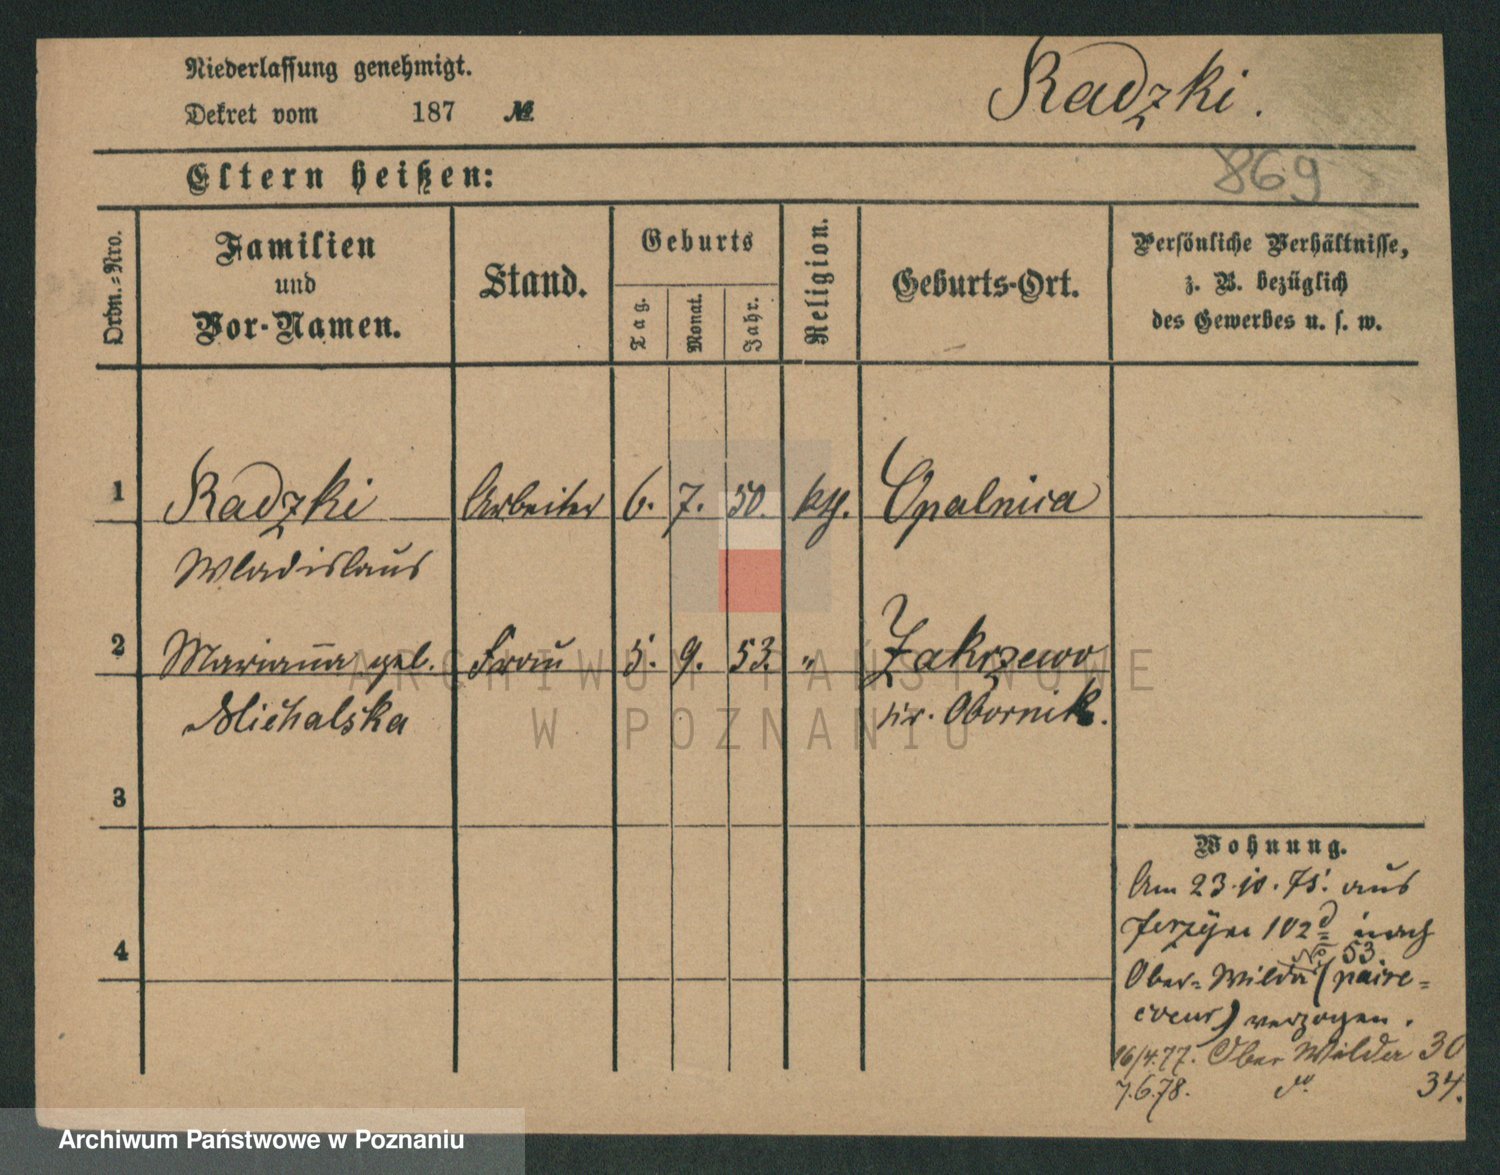 Niederlassung genehmigt.
Dekret vom 187 №
Radzki.
869
Eltern heißen:
Ordn.-Nro.
Familien
und
Vor-Namen.
Stand.
Geburts
Tag.
Monat.
Jahr.
Religion.
Geburts-Ort.
Persönliche Verhältnisse,
z. B. bezüglich
des Gewerbes u. s. w.
1 Radzki Arbeiter 6. 7. 50. kth. Opalnica
Wladislaus
2 Marianna geb. Frau 5. 9. 53. " Zakrzewo
Michalska Kr. Obornik.
3
4
Wohnung.
Am 23.10.75. aus
Jerzyce 102 d nach
No 53.
Ober-Wilda (
) verzogen.
16/4.77. Ober Wilda 30
7.6.78. do. 34.
ARCHIWUM PAŃSTWOWE
W POZNANIU
Archiwum Państwowe w Poznaniu